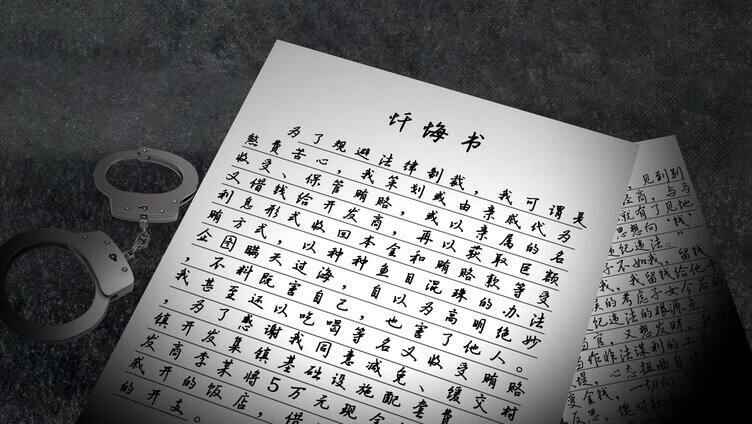 忏悔书
为了规避法律制裁，我可谓是
煞费苦心，我策划或由亲戚代为
收受、保管贿赂，或以亲属的名
义借钱给开发商，再以获取巨额
利息形式收回本金和贿赂款等受
贿方式，以种种鱼目混珠的办法
企图瞒天过海，自以为高明绝妙
，不料既害自己，也害了他人。
我甚至还以吃喝等名义收受贿赂
，为了感谢我同意减免、缓交村
镇开发集镇基础设施配套费
发商李某将5万元现金
成开的饭店，借
的开支。
，见到别
商，与马
就有了见地
思想向"钱，
纪违法。"
子不如我，留钱
，我留钱给他干
的考虑子女今后的
纪违法的根源点
官，又想发财，他
作非法谋利的工
，心态扭曲自
金钱，一切向
反思，愧对